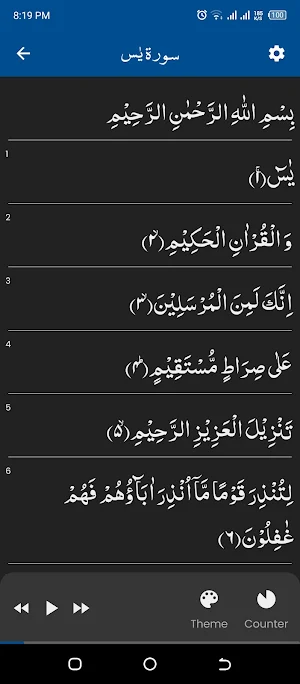 8:19 PM
185 K/S 100
سورۃ یٰس
بِسْمِ اللّٰهِ الرَّحْمٰنِ الرَّحِيْمِ
1
يٰسٓ (۱)
2
وَ الْقُرْاٰنِ الْحَكِيْمِ (۲)
3
اِنَّكَ لَمِنَ الْمُرْسَلِيْنَ (۳)
4
عَلٰى صِرَاطٍ مُّسْتَقِيْمٍ (۴)
5
تَنْزِيْلَ الْعَزِيْزِ الرَّحِيْمِ (۵)
6
لِتُنْذِرَ قَوْمًا مَّاۤ اُنْذِرَ اٰبَآؤُهُمْ فَهُمْ
غٰفِلُوْنَ (۶)
Theme Counter